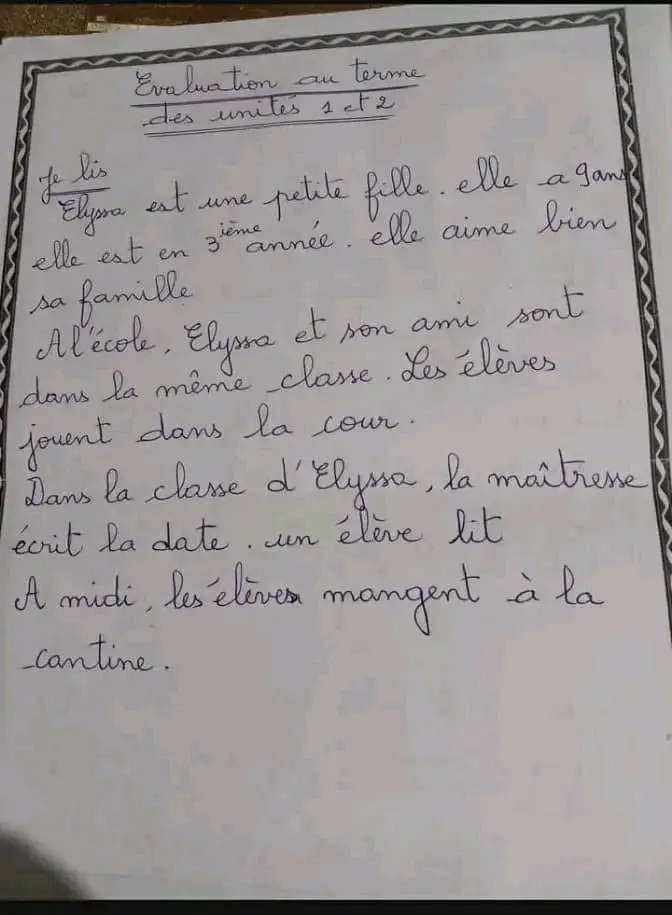 Evaluation au terme
des unités 1 et 2
Je lis
Elyssa est une petite fille. elle a 9 ans
elle est en 3ième année. elle aime bien
sa famille
A l'école, Elyssa et son ami sont
dans la même classe. Les élèves
jouent dans la cour.
Dans la classe d'Elyssa, la maîtresse
écrit la date. un élève lit
A midi, les élèves mangent à la
cantine.